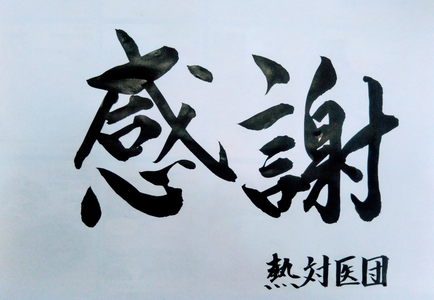 感謝
熱対医団